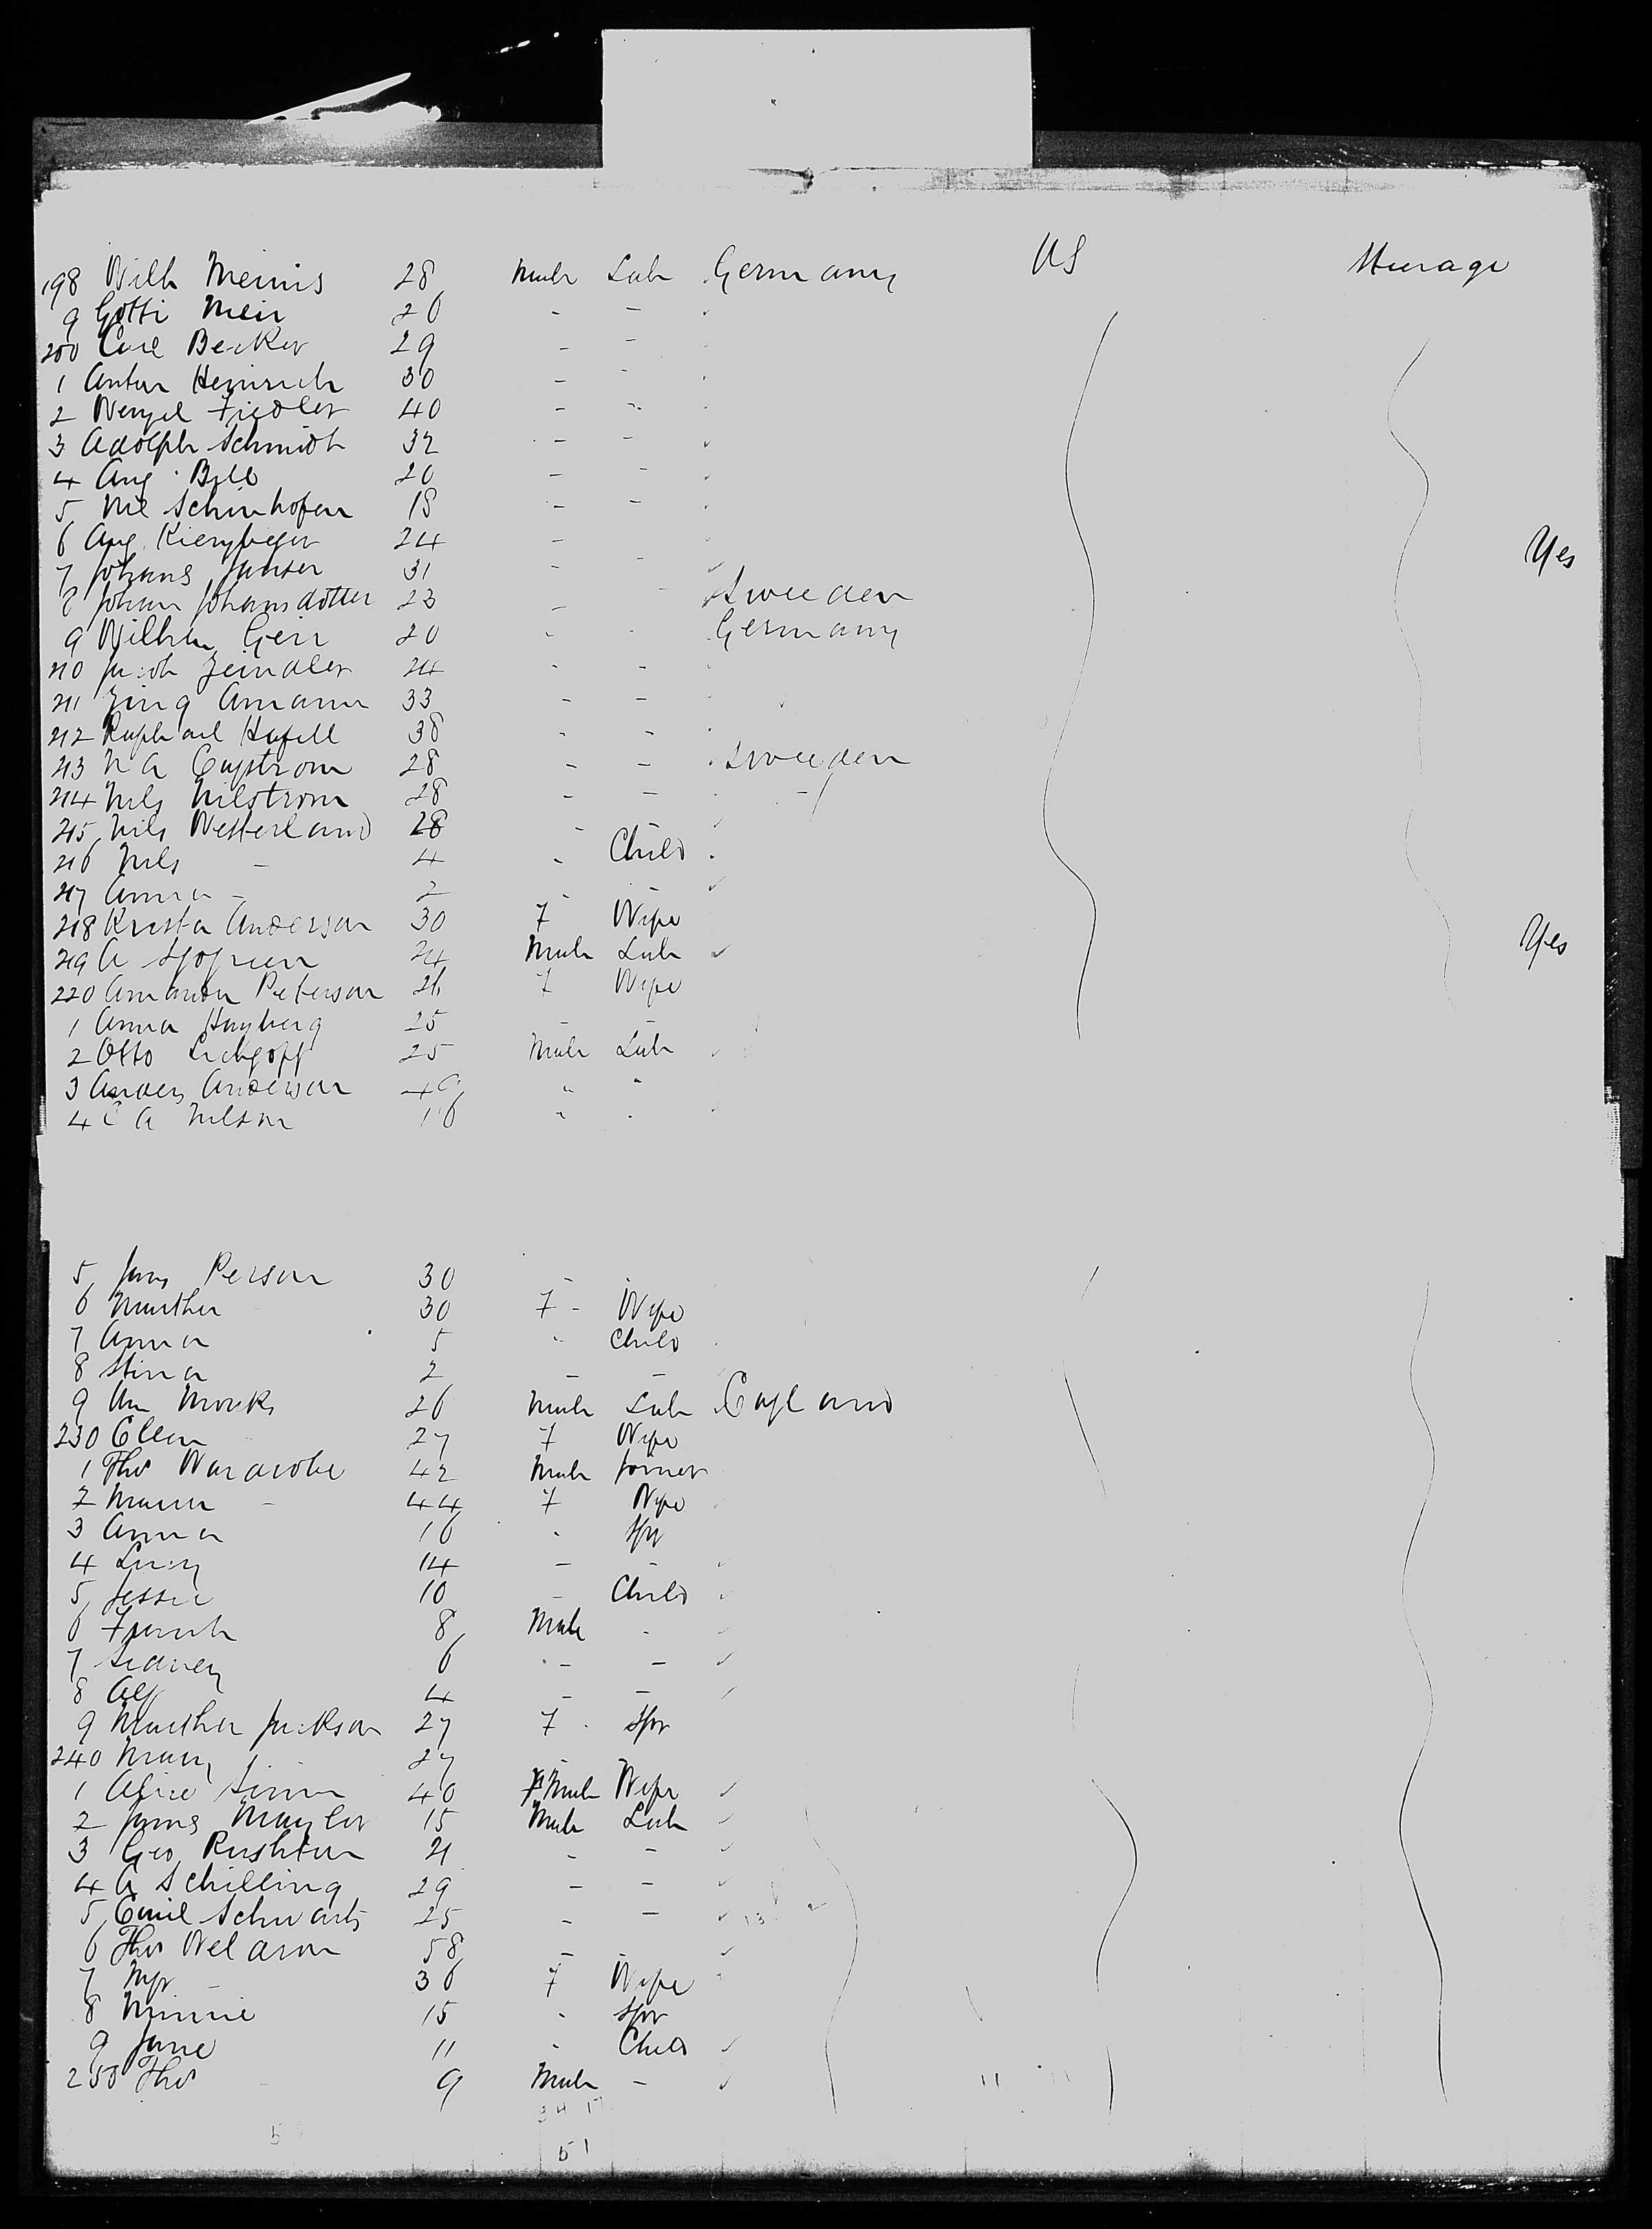 198 Wilh Meinis 28 Male Lab Germany US Steerage
9 Gotti Meir 26 - -
200 Carl Becker 29 - -
1 Anton Heinrich 30 - -
2 Wenzel Fiedler 40 - -
3 Adolph Schmidt 32 - -
4 Aug Bill 20 - -
5 Schinhofen 18 - -
6 Aug 24 - Yes
7 Johans Jansen 31 -
8 Johan Johansdotter 23 - Sweeden
9 Wilhm Geir 20 - - Germany
210 Jacob Zeindler 24 - -
211 Amann 33 - -
212 Raphael Hafell 38 - -
213 N A 28 - - Sweeden
214 Nils Nilstrom 28 - - -
215 Nils Westerland 28 - -
216 Nils - 4 - Child
217 Anna - 2 - -
218 Krista Anderson 30 F Wife
219 A 24 Male Lab Yes
220 Amanda Peterson 26 F Wife
1 Anna Hagberg 25 - -
2 Otto 25 Male Lab
3 Anders Anderson 49 " "
4 C A Nilson 16 " "
5 Jons Person 30 - -
6 Martha - 30 F - Wife
7 Anna 5 " Child
8 Stina 2 - -
9 Wm Monks 26 Male Lab England
230 Ellen 27 F Wife
1 Thos Wardrobe 42 Male Joiner
2 Maria - 44 F Wife
3 Anna 16 - Spr
4 Lucy 14 - -
5 Jessie 10 - Child
6 Frank 8 Male -
7 Sidney 6 - -
8 Alf 4 - -
9 Martha Jackson 27 F Spr
240 Mary 27 -
1 Alice 40 Male Wife
2 James Naylor 15 Male Lab
3 Geo Rushton 21 - -
4 A Schilling 29 - -
5 Emil Schwartz 25 - -
6 Thos Weldson 58 - -
7 Mrs - 36 F Wife
8 Minnie 15 - Spr
9 Jane 11 - Child
250 Thos - 9 Male -
34 17
51